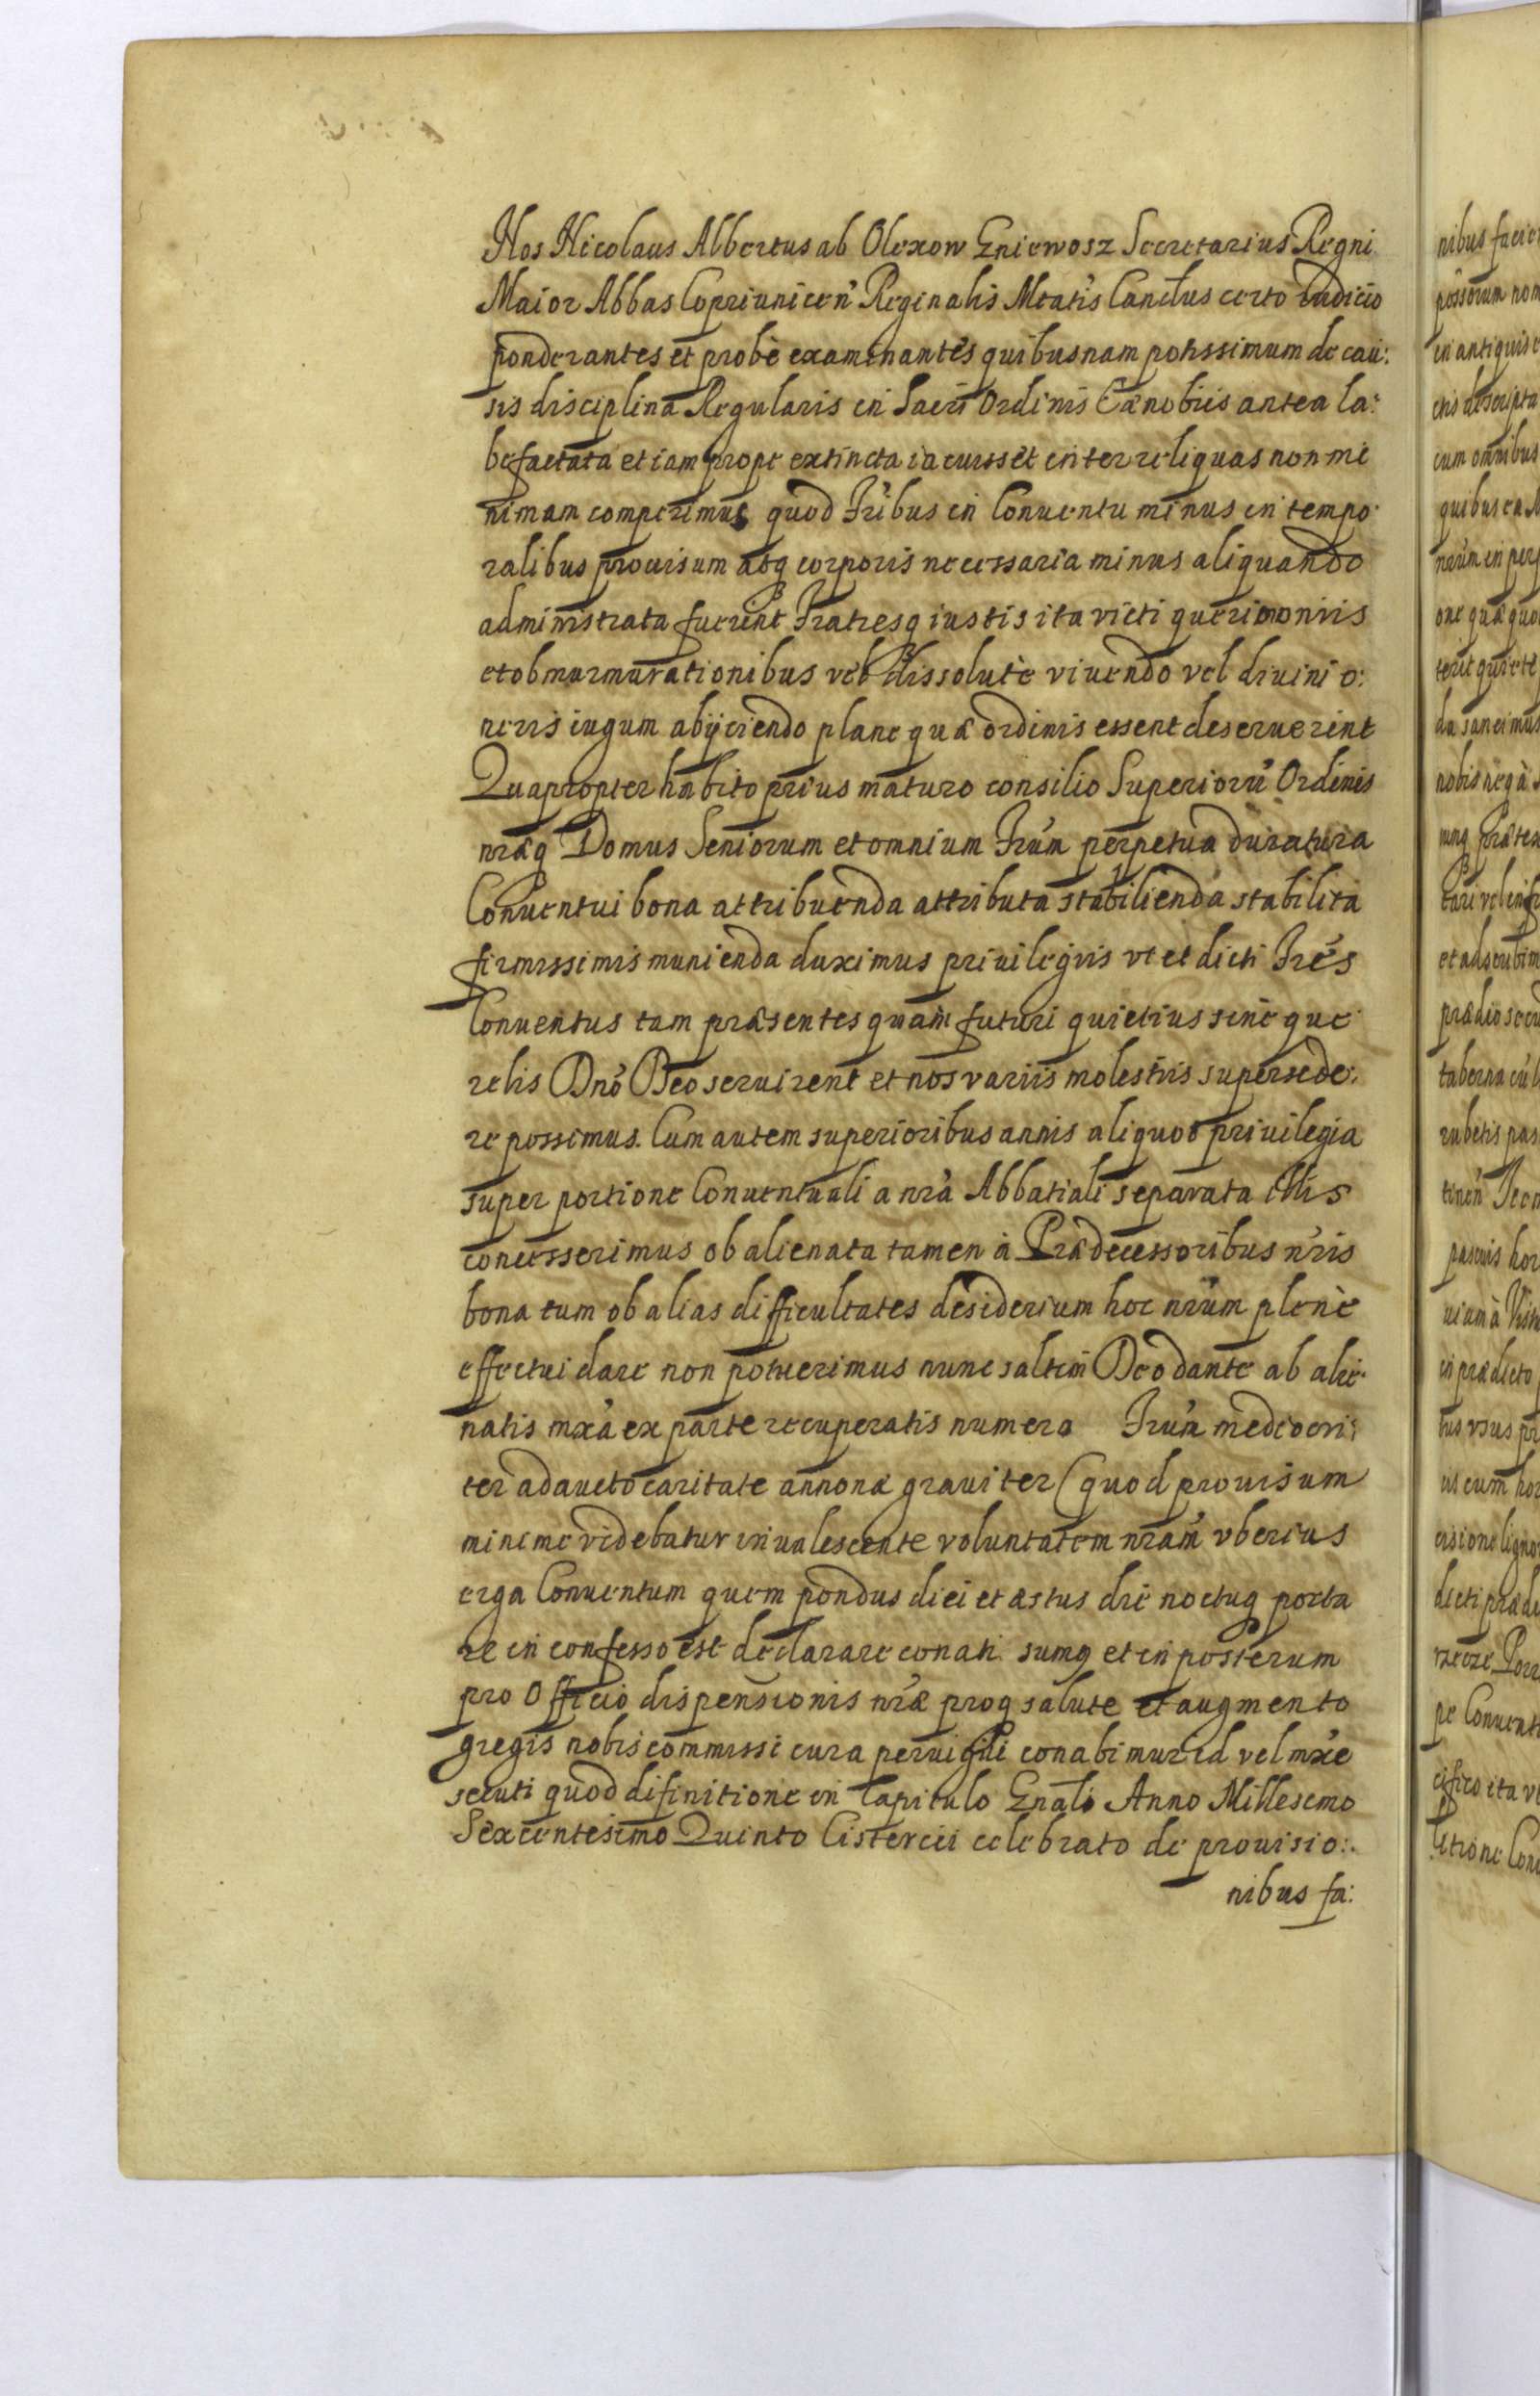 Nos Nicolaus Albertus ab Olexow Gniewosz Secretarius Regni
Maior Abbas Copriunicen̄ Reginalis Mtatis Canclus certo iudicio
ponderantes et probè examinantes quibusnam potissimum de cau:
sis disciplina Regularis in Sacri Ordinis Cænobiis antea la:
befactata et iam prope extincta iacuisset inter reliquas non mi
nimam comperimus quod Fribus in Conuentu minus in tempo
ralibus prouisum atq corporis necessaria minus aliquando
administrata fuerint Fratresq iustis ita victi querimoniis
et obmurmurationibus vel dissolutè viuendo vel diuini o:
neris iugum abijciendo plane quæ ordinis essent deseruerint
Quapropter habito prius maturo consilio Superiorū Ordinis
nræq Domus Seniorum et omnium Frum perpetua duratura
Conuentui bona attribuenda attributa stabilienda stabilita
firmissimis munienda duximus priuilegiis vt et dicti Fres
Conuentus tam præsentes quam futuri quietius sine que
relis Dno Deo seruirent et nos variis molestiis supersede:
re possimus. Cum autem superioribus annis aliquod priuilegia
super portione Conuentuali a nra Abbatiali separata illis
concesserimus ob alienata tamen à Prædecessoribus nris
bona tum ob alias difficultates desiderium hoc nrum plenè
effectui dare non potuerimus nunc saltem Deo dante ab alie
natis mxa ex parte recuperatis numero Frum mediocri:
ter adaucto caritate annonæ grauiter (quod prouisum
minime videbatur inualescente voluntatem nram vberius
erga Conuentum quem pondus diei et æstus die noctuq porta
re in confesso est declarare conati sumq et in posterum
pro Officio dispensionis nræ proq salute et augmento
gregis nobis commissi cura peruigili conabimur id vel mxe
secuti quod difinitione in Capitulo Gnali Anno Millesimo
Sexcentesimo Quinto Cistercii celebrato de prouisio:
nibus fa: